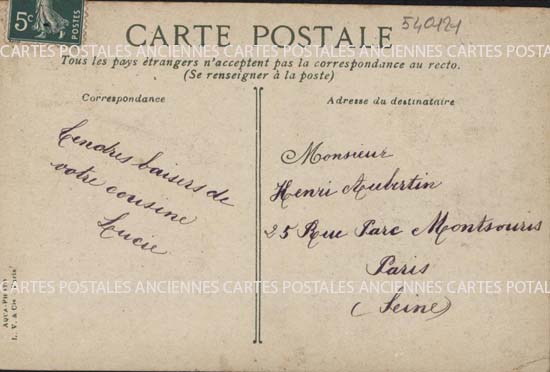 5c POSTES
CARTE POSTALE
540121
CARTES POSTALES ANCIENNES CARTES POSTALES ANCIENNES CARTES POSTALES
Tous les pays étrangers n'acceptent pas la correspondance au recto.
(Se renseigner à la poste)
Correspondance
Tendres baisers de
votre cousine
Lucie
Adresse du destinataire
Monsieur
Henri Aubertin
25 Rue Parc Montsouris
Paris
(Seine)
CARTES POSTALES ANCIENNES CARTES POSTALES ANCIENNES CARTES POSTALES
AQUA-PHOTO
L. V. & Cie Paris